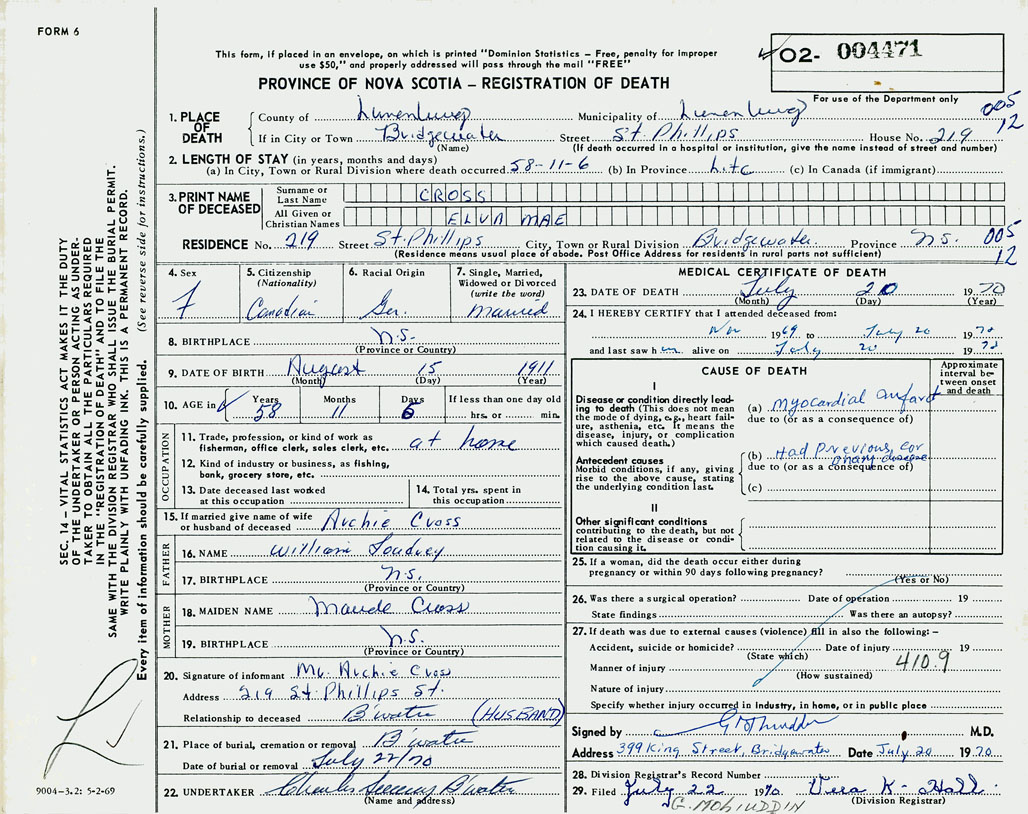 FORM 6
This form, if placed in an envelope, on which is printed "Dominion Statistics – Free, penalty for improper
use $50," and properly addressed will pass through the mail "FREE"
O2- 004471
PROVINCE OF NOVA SCOTIA – REGISTRATION OF DEATH
For use of the Department only
1. PLACE OF DEATH
County of Lunenburg Municipality of Lunenburg 005
If in City or Town Bridgewater Street St. Phillips House No. 219 12
(Name) (If death occurred in a hospital or institution, give the name instead of street and number)
2. LENGTH OF STAY (in years, months and days)
(a) In City, Town or Rural Division where death occurred 58-11-6 (b) In Province Life (c) In Canada (if immigrant)
3. PRINT NAME OF DECEASED
Surname or Last Name CROSS
All Given or Christian Names ELVA MAE
RESIDENCE No. 219 Street St. Phillips City, Town or Rural Division Bridgewater Province N.S. 005
(Residence means usual place of abode. Post Office Address for residents in rural parts not sufficient) 12
4. Sex
F
5. Citizenship
(Nationality)
Canadian
6. Racial Origin
Ger.
7. Single, Married,
Widowed or Divorced
(write the word)
Married
8. BIRTHPLACE N.S.
(Province or Country)
9. DATE OF BIRTH August 15 1911
(Month) (Day) (Year)
10. AGE in Years Months Days If less than one day old
58 11 6 hrs. or min.
OCCUPATION
11. Trade, profession, or kind of work as
fisherman, office clerk, sales clerk, etc. at home
12. Kind of industry or business, as fishing,
bank, grocery store, etc.
13. Date deceased last worked
at this occupation
14. Total yrs. spent in
this occupation
15. If married give name of wife
or husband of deceased Archie Cross
FATHER
16. NAME William
17. BIRTHPLACE N.S.
(Province or Country)
MOTHER
18. MAIDEN NAME Maude Cross
19. BIRTHPLACE N.S.
(Province or Country)
20. Signature of informant Mr. Archie Cross
Address 219 St. Phillips St.
Relationship to deceased B'water (HUSBAND)
21. Place of burial, cremation or removal B'water
Date of burial or removal July 22/70
22. UNDERTAKER Charles B'water
(Name and address)
MEDICAL CERTIFICATE OF DEATH
23. DATE OF DEATH July 20 1970
(Month) (Day) (Year)
24. I HEREBY CERTIFY that I attended deceased from:
Nov 1969 to July 20 1970
and last saw her alive on July 20 1970
CAUSE OF DEATH
Approximate
interval between
onset
and death
I
Disease or condition directly leading
to death (This does not mean
the mode of dying, e.g., heart failure,
asthenia, etc. It means the
disease, injury, or complication
which caused death.)
(a) Myocardial Infarct
due to (or as a consequence of)
Antecedent causes
Morbid conditions, if any, giving
rise to the above cause, stating
the underlying condition last.
(b) Had Previous coronary disease
due to (or as a consequence of)
(c)
II
Other significant conditions
contributing to the death, but not
related to the disease or condition
causing it.
25. If a woman, did the death occur either during
pregnancy or within 90 days following pregnancy?
(Yes or No)
26. Was there a surgical operation? Date of operation 19
State findings Was there an autopsy?
27. If death was due to external causes (violence) fill in also the following: –
Accident, suicide or homicide? Date of injury 19
(State which)
Manner of injury 410.9
(How sustained)
Nature of injury
Specify whether injury occurred in industry, in home, or in public place
Signed by M.D.
Address 399 King Street, Bridgewater Date July 20 1970
28. Division Registrar's Record Number
29. Filed July 22 1970 Vera K. Hall
G. MOHIUDDIN (Division Registrar)
SEC. 14 – VITAL STATISTICS ACT MAKES IT THE DUTY
OF THE UNDERTAKER OR PERSON ACTING AS UNDERTAKER
TO OBTAIN ALL THE PARTICULARS REQUIRED
IN THE "REGISTRATION OF DEATH" AND TO FILE THE
SAME WITH THE DIVISION REGISTRAR WHO SHALL ISSUE THE BURIAL PERMIT.
WRITE PLAINLY WITH UNFADING INK. THIS IS A PERMANENT RECORD.
Every item of information should be carefully supplied. (See reverse side for instructions.)
9004-3.2: 5-2-69